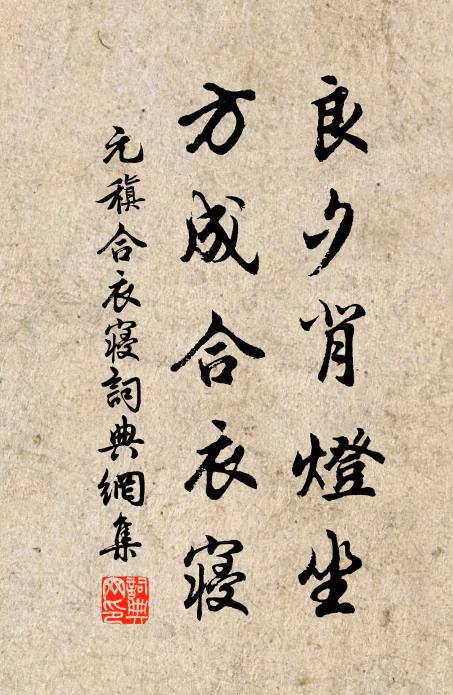 良夕背燈坐
方成合衣寢
元稹合衣寢詞典網集
詞典
网印